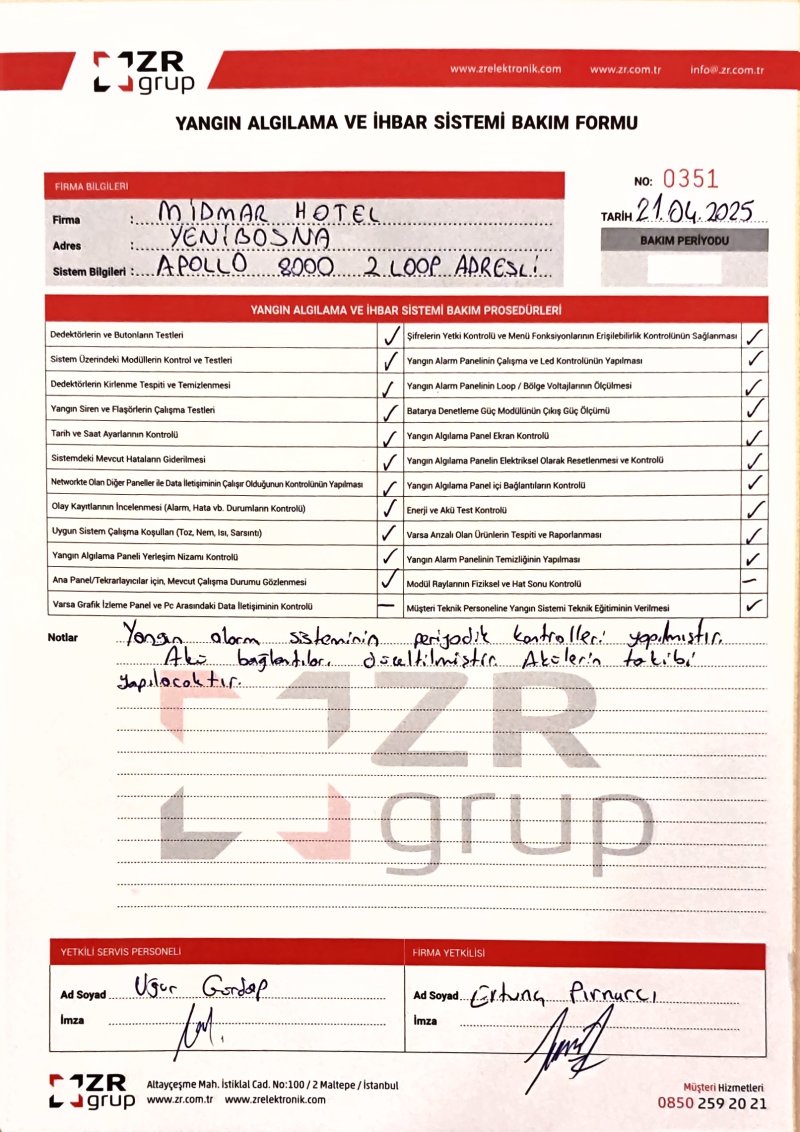 ZR
grup
www.zrelektronik.com www.zr.com.tr info@.zr.com.tr
YANGIN ALGILAMA VE İHBAR SİSTEMİ BAKIM FORMU
NO: 0351
FİRMA BİLGİLERİ
TARİH 21.04.2025
Firma : MİDMAR HOTEL
Adres : YENİBOSNA
BAKIM PERİYODU
Sistem Bilgileri : APOLLO 8000 2 LOOP ADRESLİ
YANGIN ALGILAMA VE İHBAR SİSTEMİ BAKIM PROSEDÜRLERİ
Dedektörlerin ve Butonların Testleri ✓ Şifrelerin Yetki Kontrolü ve Menü Fonksiyonlarının Erişilebilirlik Kontrolünün Sağlanması ✓
Sistem Üzerindeki Modüllerin Kontrol ve Testleri ✓ Yangın Alarm Panelinin Çalışma ve Led Kontrolünün Yapılması ✓
Dedektörlerin Kirlenme Tespiti ve Temizlenmesi ✓ Yangın Alarm Panelinin Loop / Bölge Voltajlarının Ölçülmesi ✓
Yangın Siren ve Flaşörlerin Çalışma Testleri ✓ Batarya Denetleme Güç Modülünün Çıkış Güç Ölçümü ✓
Tarih ve Saat Ayarlarının Kontrolü ✓ Yangın Algılama Panel Ekran Kontrolü ✓
Sistemdeki Mevcut Hataların Giderilmesi ✓ Yangın Algılama Panelin Elektriksel Olarak Resetlenmesi ve Kontrolü ✓
Networkte Olan Diğer Paneller ile Data İletişiminin Çalışır Olduğunun Kontrolünün Yapılması ✓ Yangın Algılama Panel içi Bağlantıların Kontrolü ✓
Olay Kayıtlarının İncelenmesi (Alarm, Hata vb. Durumların Kontrolü) ✓ Enerji ve Akü Test Kontrolü ✓
Uygun Sistem Çalışma Koşulları (Toz, Nem, Isı, Sarsıntı) ✓ Varsa Arızalı Olan Ürünlerin Tespiti ve Raporlanması ✓
Yangın Algılama Paneli Yerleşim Nizamı Kontrolü ✓ Yangın Alarm Panelinin Temizliğinin Yapılması ✓
Ana Panel/Tekrarlayıcılar için, Mevcut Çalışma Durumu Gözlenmesi ✓ Modül Raylarının Fiziksel ve Hat Sonu Kontrolü –
Varsa Grafik İzleme Panel ve Pc Arasındaki Data İletişiminin Kontrolü – Müşteri Teknik Personeline Yangın Sistemi Teknik Eğitiminin Verilmesi ✓
Notlar Yangın alarm sisteminin periyodik kontrolleri yapılmıştır.
Akü bağlantıları düzeltilmiştir. Akülerin takibi
yapılacaktır.
ZR
grup
YETKİLİ SERVİS PERSONELİ FİRMA YETKİLİSİ
Ad Soyad Uğur Ad Soyad Ertunç
İmza İmza
ZR
grup
Altayçeşme Mah. İstiklal Cad. No:100 / 2 Maltepe / İstanbul
www.zr.com.tr www.zrelektronik.com
Müşteri Hizmetleri
0850 259 20 21